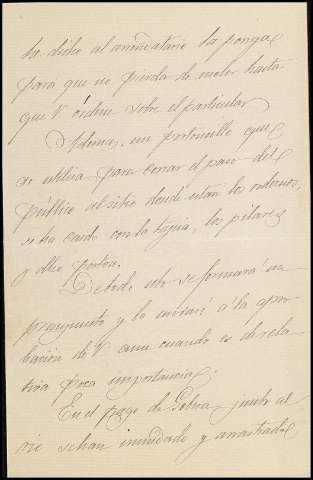 ha dicho al arrendatario la ponga
para que no pierda de moler hasta
que V ordene sobre el particular
Ademas, un portoncillo que
se utiliza para cerrar el paso del
público al sitio donde están los
se ha caido con la tapia, los pilares
y dha porton.
De todo esto se formará un
presupuesto y lo enviaré á la apro
bación de V aun cuando es de rela
tiva poca importancia.
En el pago de junto al
rio se han inundado y arrastrado